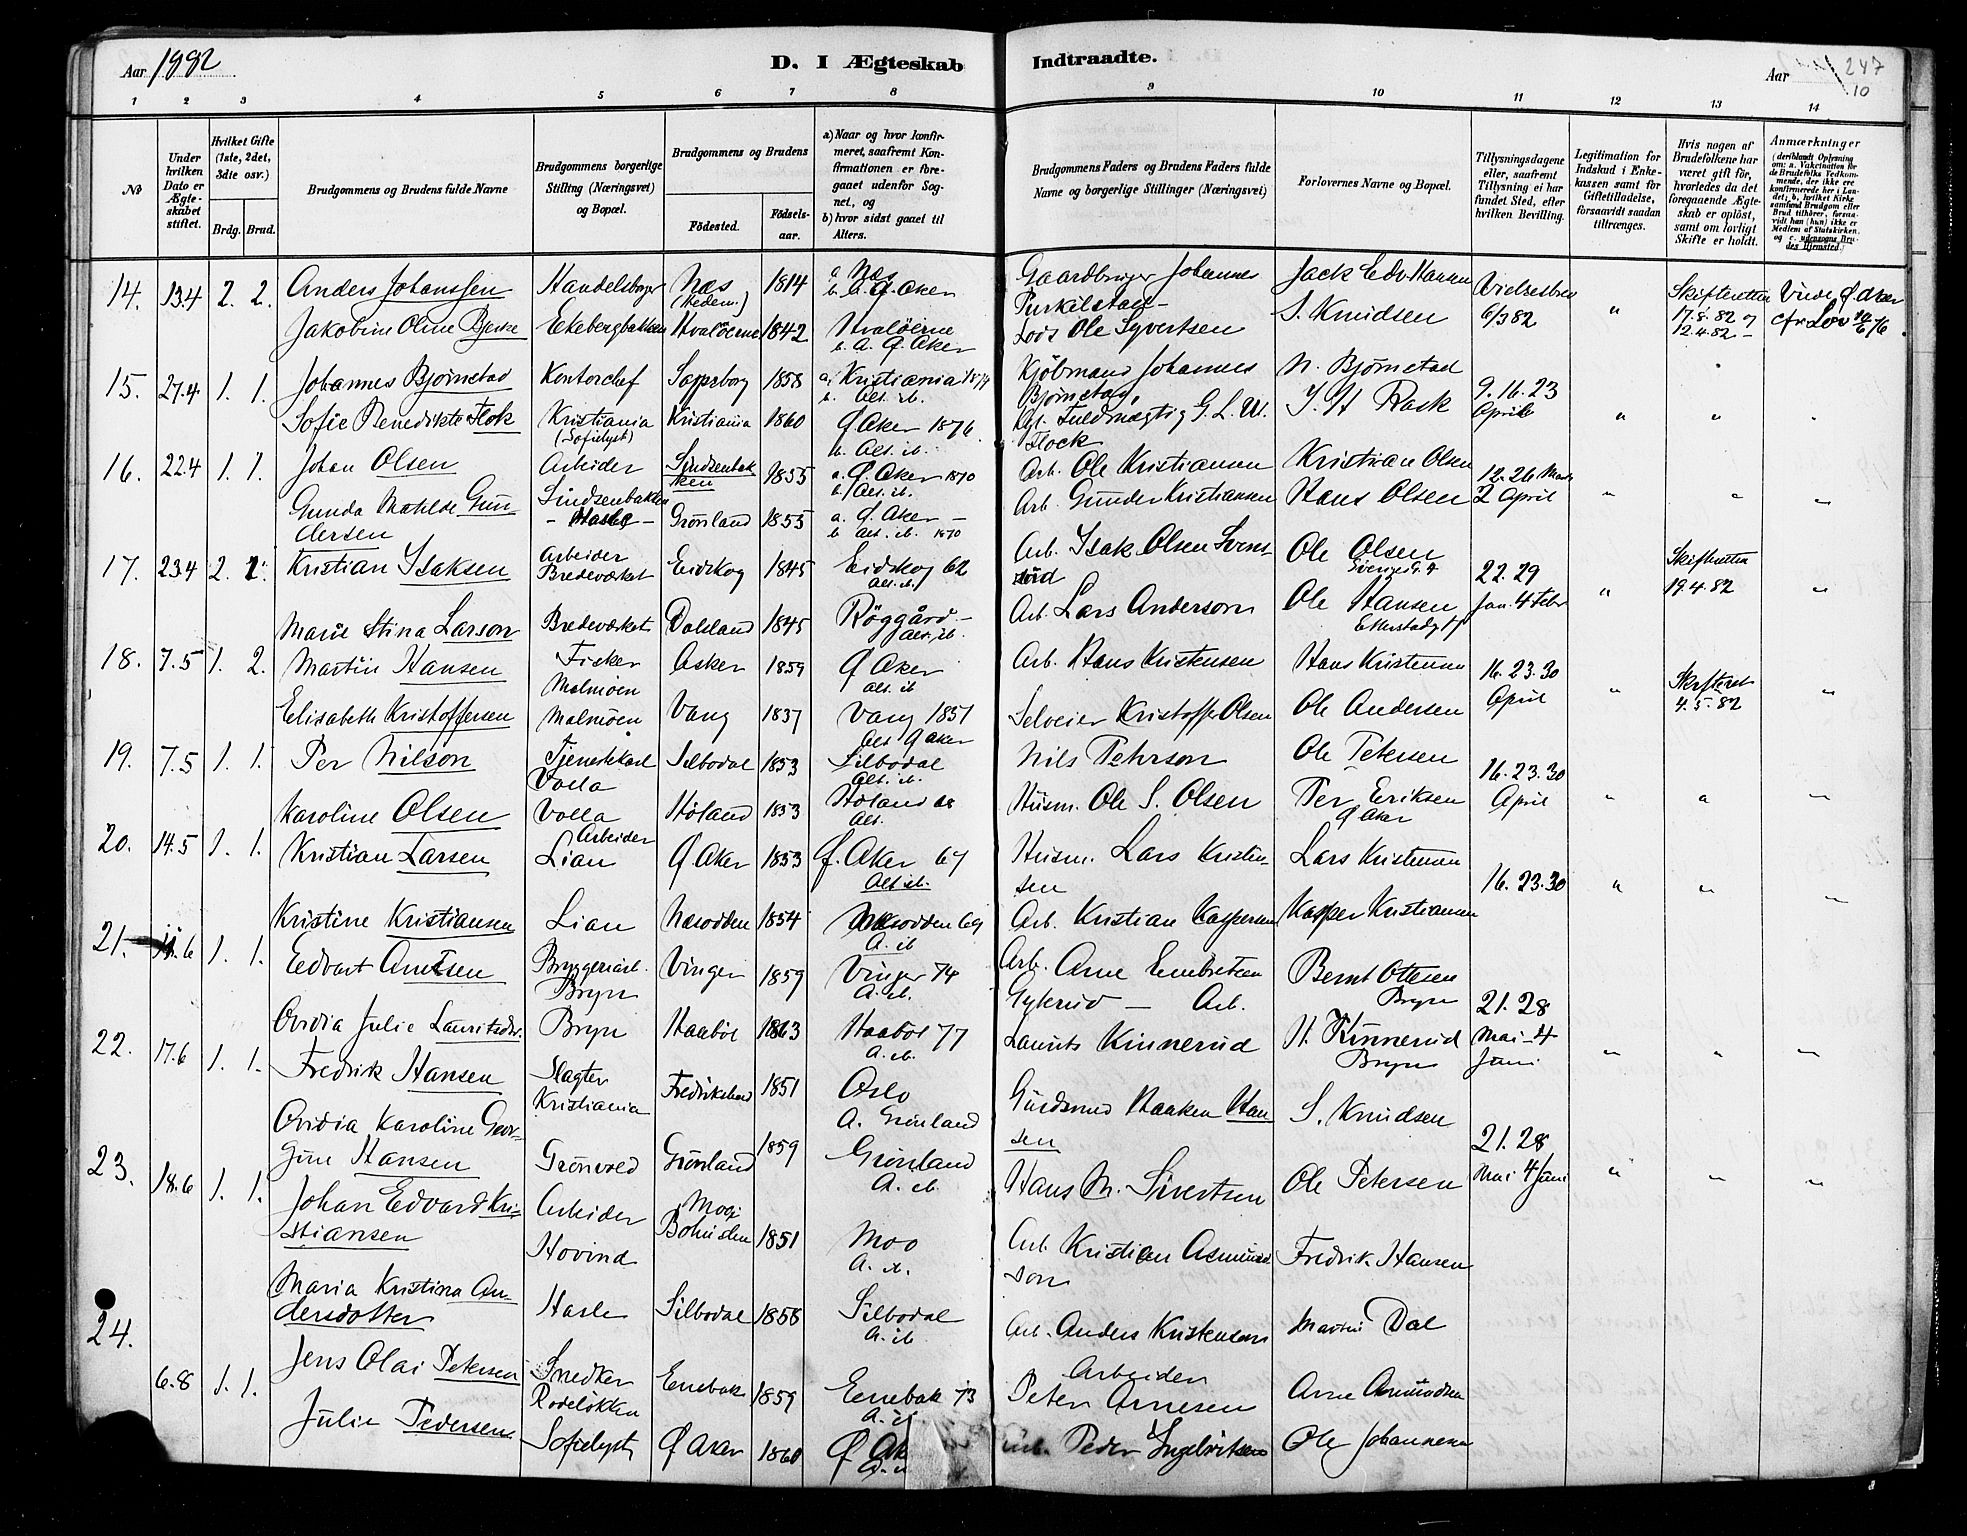 Aar 1882
D. I Ægteskab Indtraadte.
Aar 247
10
1 2 3 4 5 6 7 8 9 10 11 12 13 14
No
Under hvilken Dato er Ægteskabet stiftet.
Hvilket Gifte (1ste, 2det, 3die osv.)
Brdg. Brud.
Brudgommens og Brudens fulde Navne
Brudgommens borgerlige Stilling (Næringsvei) og Bopæl.
Brudgommens og Brudens
Fødested.
Fødsels-aar.
a) Naar og hvor konfirmeret, saafremt Konfirmationen er foregaaet udenfor Sognet, og
b) hvor sidst gaaet til Alters.
Brudgommens Faders og Brudens Faders fulde Navne og borgerlige Stillinger (Næringsvei)
Forlovernes Navne og Bopæl.
Tillysningsdagene eller, saafremt Tillysning ei har fundet Sted, efter hvilken Bevilling.
Legitimation for Indskud i Enkekassen samt for Giftetilladelse, forsaavidt saadan tiltrænges.
Hvis nogen af Brudefolkene har været gift før, hvorledes da det foregaaende Ægteskab er opløst, samt om lovligt Skifte er holdt.
Anmærkninger
14. 13.4 2. 2. Anders Johanssen Handelsborger Næs (Hedem.) 1814 a Næs b. A. Ø. Aker Gaardbruger Johannes Jack Edv. Hansen 6/3 82 " Skifteretten 17.8.82 og 12.4.82
Jakobine Oline Bjerke Ekebergbakken Hvaløerne 1842 Hvaløerne b. A. Ø. Aker Lods Ole Syvertsen S. Knudsen
15. 27.4 1. 1. Johannes Bjørnstad Kontorchef Sarpsborg 1858 a. Kristiania 1874 b. Alt. ib. Kjøbmand Johannes Bjørnstad, N. Bjørnstad 9. 16. 23 April
Sofie Benedikte Flok Kristiania (Sofielyst) Kristiania 1860 Ø Aker 1876. b. Alt. ib. Fuldmægtig G. L. W. Flock " "
16. 22.4 1. 1. Johan Olsen Arbeider Sindsenbakken 1855 a. Ø. Aker 1870 b. Alt. ib. Arb. Ole Kristiansen Kristian Olsen 12. 26 Marts 2 April " " "
Gunda Matilde Gundersen Sindsenbakken - Hasle - Grønland 1855 a. Ø. Aker - b. Alt. ib. 1870 Arb. Gunder Kristiansen Hans Olsen
17. 23.4 2. 1. Kristian Isaksen Arbeider Bredeværket Eidskog 1845 Eidskog 62 Alt. ib. Arb. Isak Olsen Ole Olsen 22. 29 Jan. 4 Febr " Skifteretten 19.4.82 "
Marie Stina Larson Bredeværket Dalsland 1845 Alt. ib. Arb. Lars Anderson Ole Hansen
18. 7.5 1. 2. Martin Hansen Fisker Malmøen Asker 1859 Ø Aker Alt. ib Arb. Hans Kristensen Hans Kristensen 16. 23. 30 April " Skifteret 4.5.82 "
Elisabeth Kristoffersen Malmøen Vang 1837 Vang 1851 Alt Ø Aker Selveier Kristoffer Olsen Ole Andersen
19. 7.5 1. 1. Per Nilson Tjenestekarl Volla Silbodal 1853 Silbodal Alt. ib. Nils Pehrson Ole Petersen 16. 23. 30 April " " "
Karoline Olsen Volla Høland 1853 Høland 68 Alt. Husm. Ole S. Olsen Per Eriksen Ø Aker
20. 14.5 1. 1. Kristian Larsen Arbeider Lian Ø Aker 1853 Ø. Aker 67 Alt. ib. Husm. Lars Kristensen Lars Kristensen 16. 23. 30 " " "
Kristine Kristiansen Lian Næsodden 1854 Næsodden 69 A. ib Arb. Kristian Kaspersen Kasper Kristiansen
21. 11.6 1. 1. Edvart Arntsen Bryggeriarb. Bryn Vinger 1859 Vinger 74 A. ib. Arb. Arne Embretsen Gykrud - Arb. Bernt Ottesen Bryn 21. 28 Mai - 4 Juni " " "
Ovidia Julie Lauritsdr. Bryn Haabøl 1863 Haabøl 77 A. ib. Laurits Kinnerud H. Kinnerud Bryn
22. 17.6 1. 1. Fredrik Hansen Slagter Kristiania 1851 Oslo A. Grønland Haaken Hansen S. Knudsen 21. 28 Mai 4 Juni " " "
Ovidia Karoline Georgine Hansen Grønvold Grønland 1859 Grønland A. ib. Hans M. Sivertsen Ole Petersen
23. 18.6 1. 1. Johan Edvard Kristiansen Arbeider Hovind Mo Bohuslen 1851 Moo A. ib. Arb. Kristian Asmundson Fredrik Hansen
Maria Kristina Andersdotter Hasle Silbodal 1858 Silbodal A. ib. Arb. Anders Kristenson Martin Dal
24. 6.8 1. 1. Jens Olai Petersen Snedker Rodeløkken Enebak 1859 Enebak 73 A. ib Arbeider Peter Arnesen Arne Asmundsen
Julie Pedersen Sofielyst Ø Aker 1860 Ø Ak Arb. Peder Ingebretsen Ole Johannesen